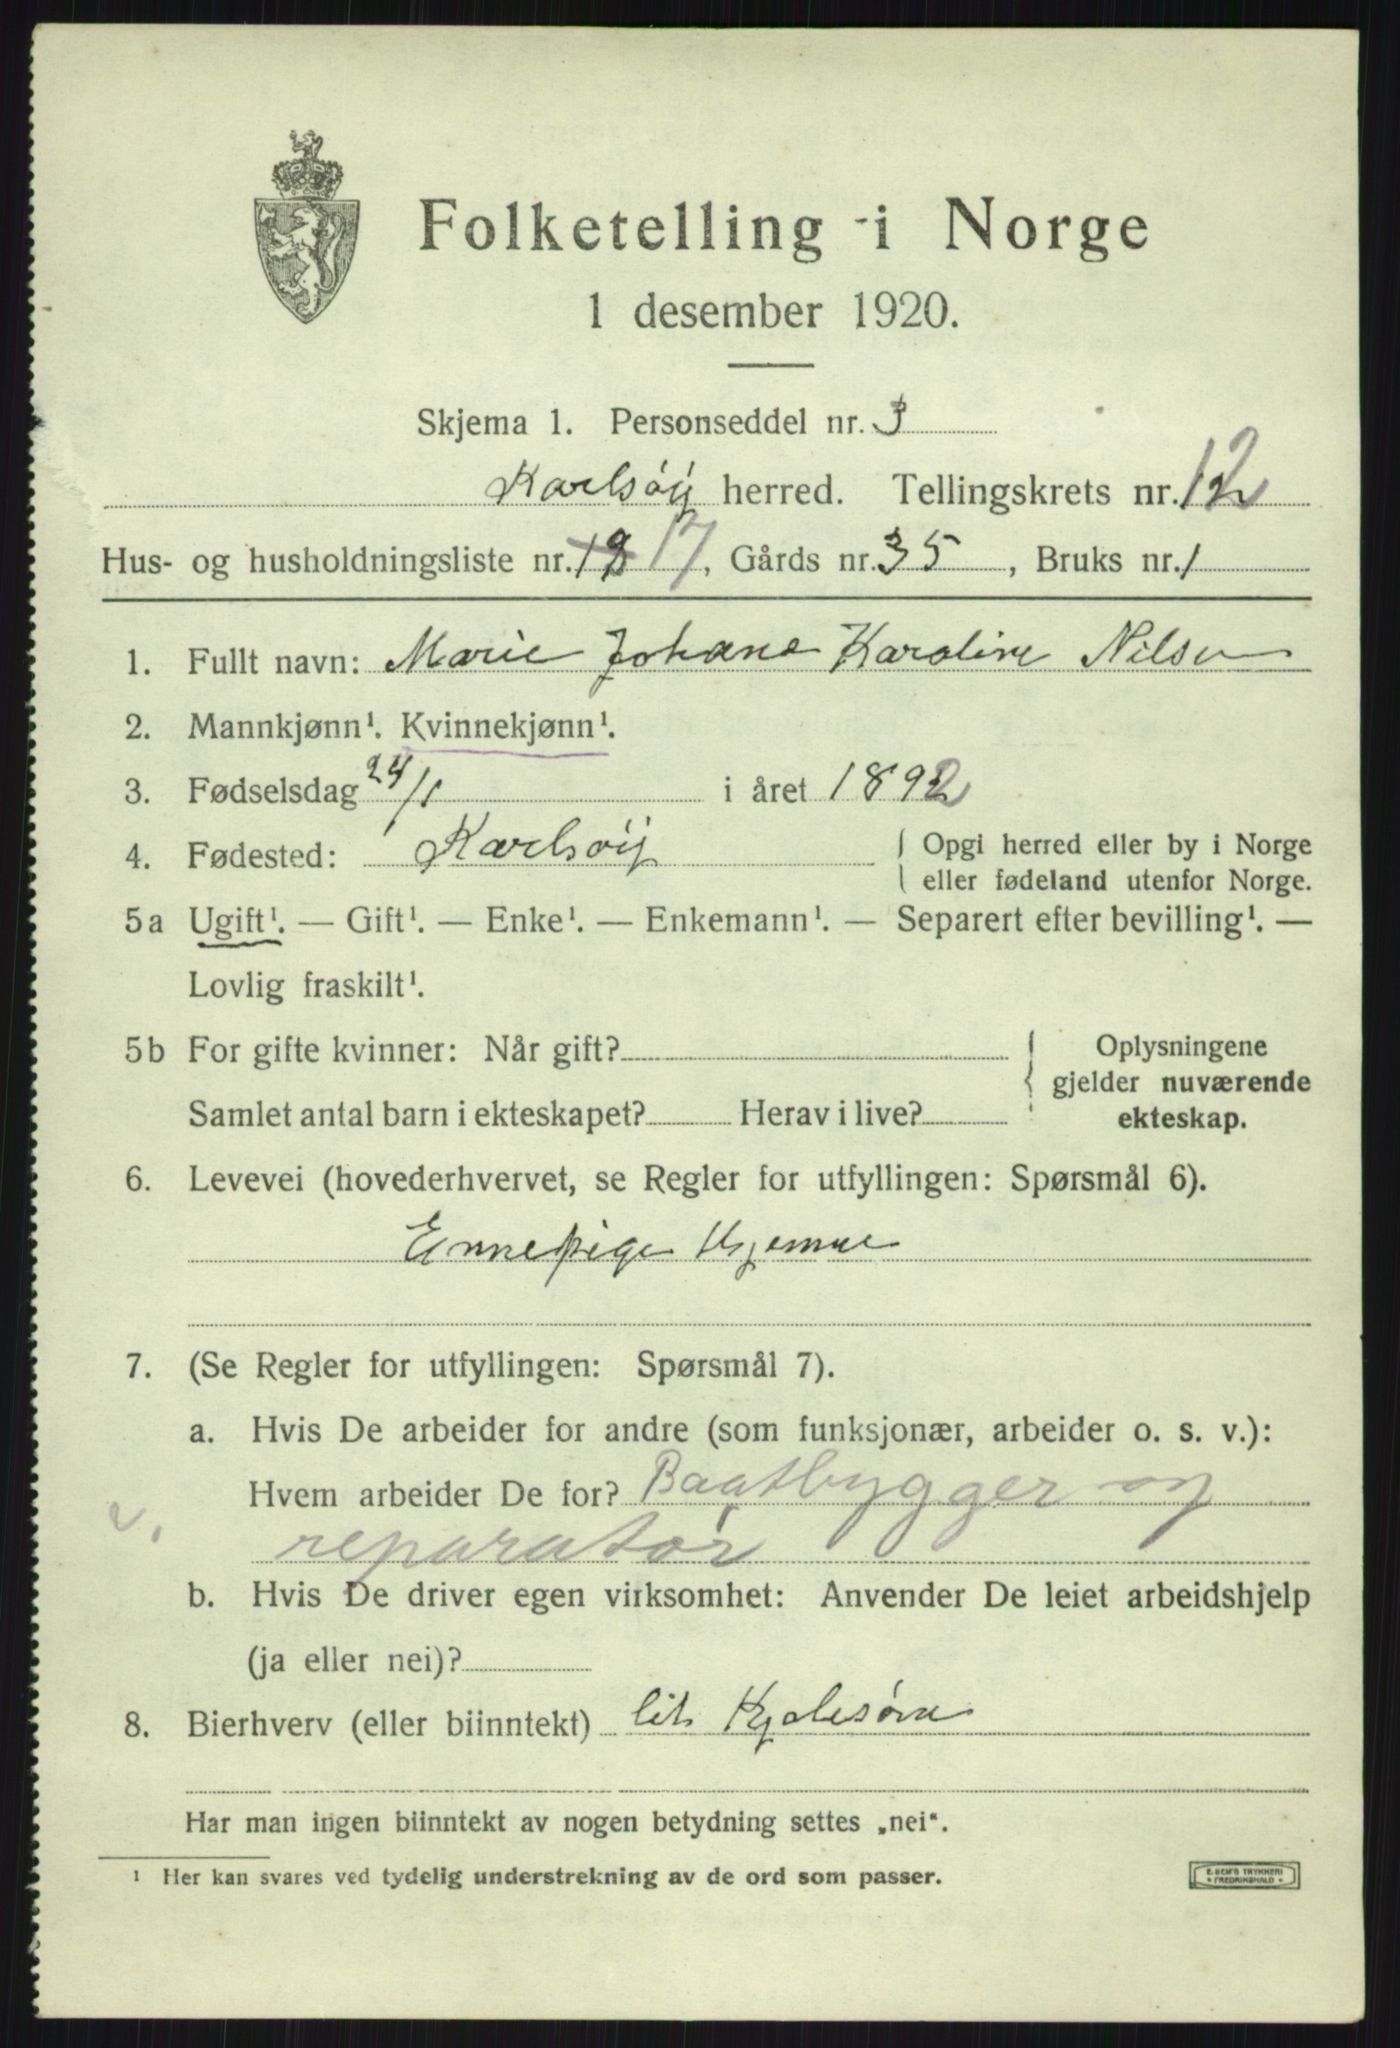 Folketelling i Norge
1 desember 1920.
Skjema 1. Personseddel nr. 3
Karlsöy herred. Tellingskrets nr. 12
Hus- og husholdningsliste nr. 18 17, Gårds nr. 35, Bruks nr. 1
1. Fullt navn: Marie Johane Karoline Nilsen
2. Mannkjønn¹. Kvinnekjønn¹.
3. Fødselsdag 24/1 i året 1892
4. Fødested: Karlsöy { Opgi herred eller by i Norge
eller fødeland utenfor Norge.
5a Ugift¹. — Gift¹. — Enke¹. — Enkemann¹. — Separert efter bevilling¹. —
Lovlig fraskilt¹.
5b For gifte kvinner: Når gift? { Oplysningene
gjelder nuværende
Samlet antal barn i ekteskapet? Herav i live? ekteskap.
6. Levevei (hovederhvervet, se Regler for utfyllingen: Spørsmål 6).
Ennepige Hjemme
7. (Se Regler for utfyllingen: Spørsmål 7).
a. Hvis De arbeider for andre (som funksjonær, arbeider o. s. v.):
Hvem arbeider De for? Baatbygger og
reparatør
b. Hvis De driver egen virksomhet: Anvender De leiet arbeidshjelp
(ja eller nei)?
8. Bierhverv (eller biinntekt) lit
Har man ingen biinntekt av nogen betydning settes „nei“.
¹ Her kan svares ved tydelig understrekning av de ord som passer.
E. SEM'S TRYKKERI
FREDRIKSHALD